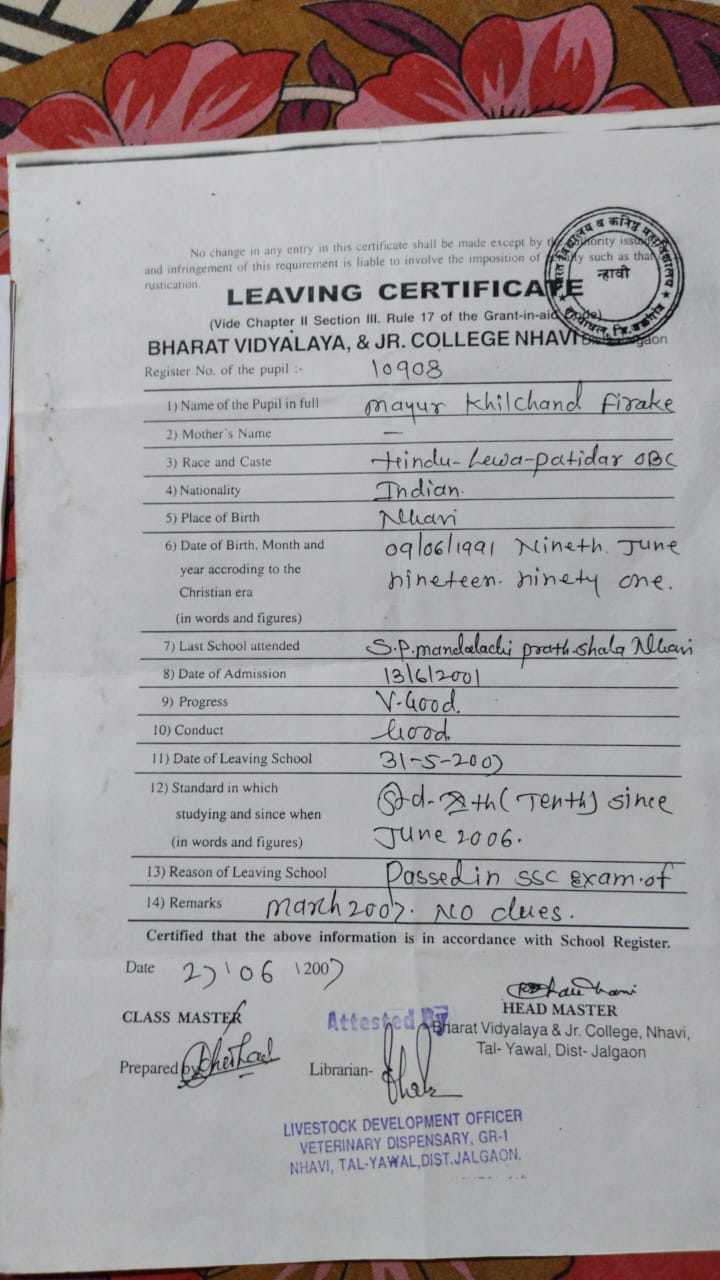 No change in any entry in this certificate shall be made except by the authority issuing
and infringement of this requirement is liable to involve the imposition of such as that
rustication.
LEAVING CERTIFICATE
(Vide Chapter II Section III. Rule 17 of the Grant-in-aid Code)
BHARAT VIDYALAYA, & JR. COLLEGE NHAVI Dist. Jalgaon
न्हावी
Register No. of the pupil :- 10908
1) Name of the Pupil in full Mayur Khilchand Firake
2) Mother's Name —
3) Race and Caste Hindu-Lewa-patidar OBC
4) Nationality Indian.
5) Place of Birth Nhavi
6) Date of Birth, Month and 09/06/1991 Nineth. June
year accroding to the nineteen. ninety one.
Christian era
(in words and figures)
7) Last School attended S.P. mandalachi prath-shala Nhavi
8) Date of Admission 13/6/2001
9) Progress V-Good.
10) Conduct Good
11) Date of Leaving School 31-5-2007
12) Standard in which Std-Xth (Tenth) since
studying and since when June 2006.
(in words and figures)
13) Reason of Leaving School Passed in SSC Exam. of
14) Remarks March 2007. No dues.
Certified that the above information is in accordance with School Register.
Date 27\06\2007
HEAD MASTER
CLASS MASTER Attested By Bharat Vidyalaya & Jr. College, Nhavi,
Tal- Yawal, Dist- Jalgaon
Prepared by Librarian-
LIVESTOCK DEVELOPMENT OFFICER
VETERINARY DISPENSARY, GR-1
NHAVI, TAL-YAWAL, DIST.JALGAON.